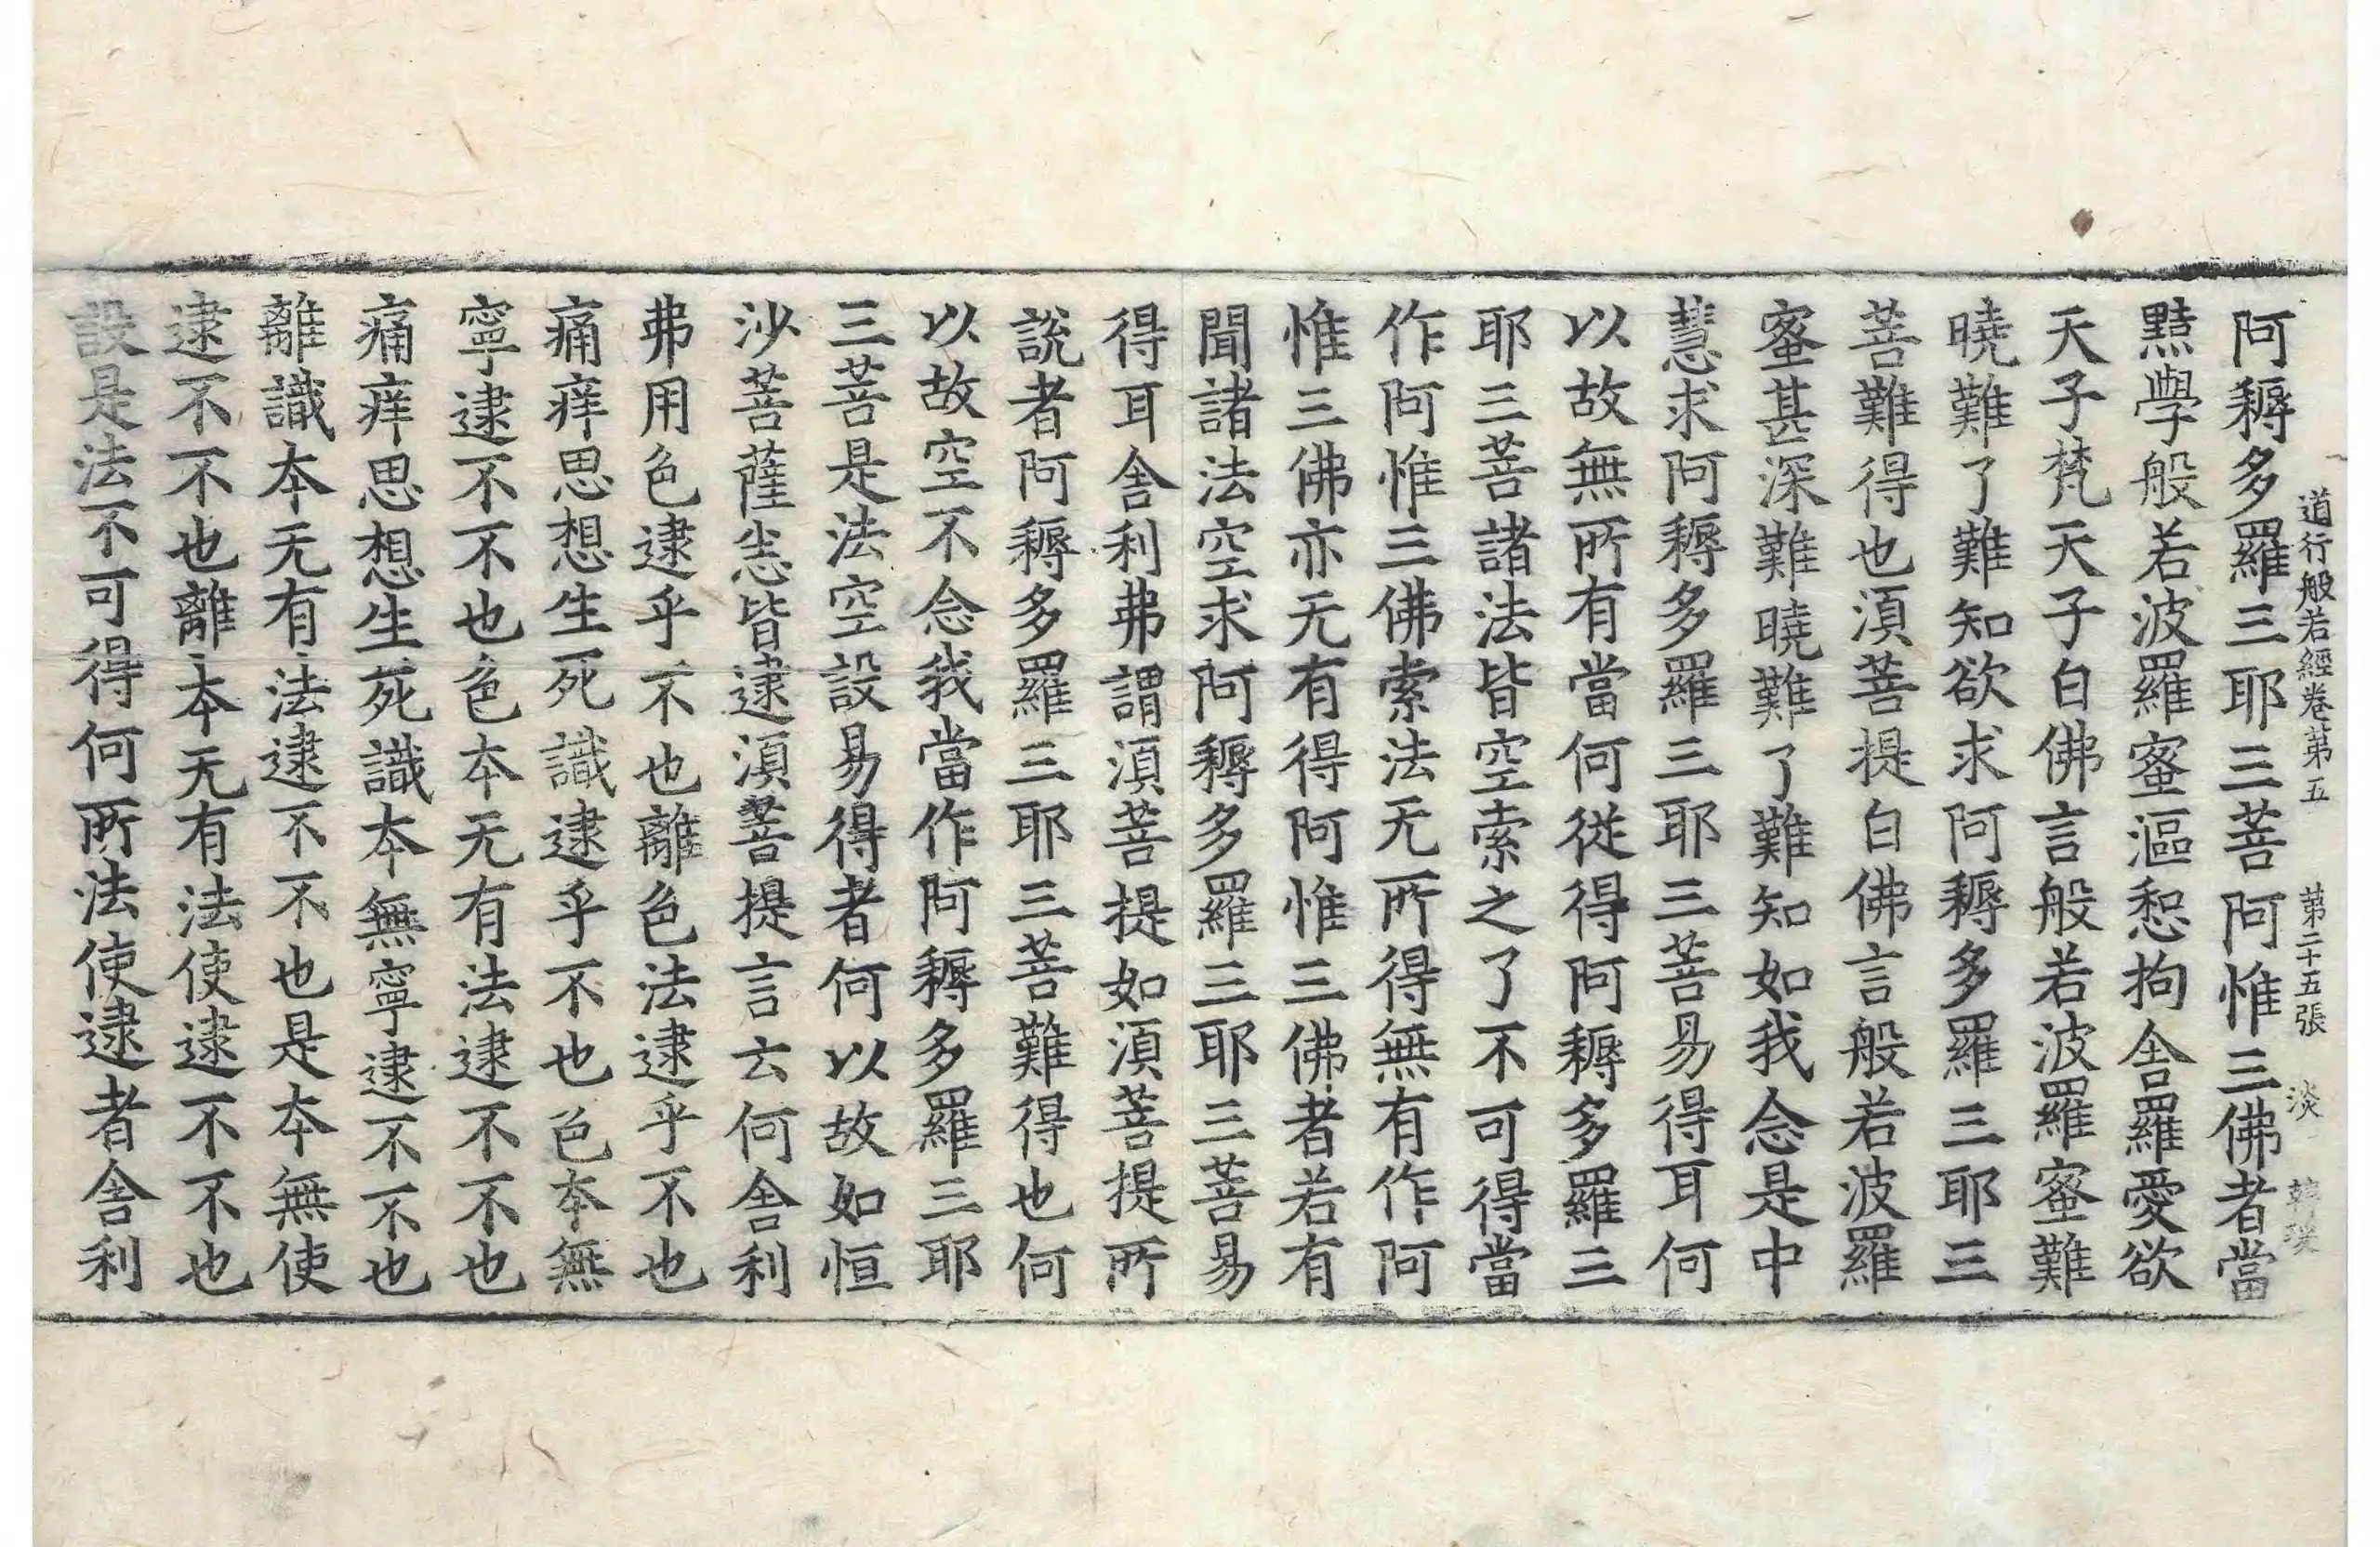 道行般若經卷第五　第二十五張　淡
阿耨多羅三耶三菩阿惟三佛者當
黠學般若波羅蜜漚恕拘舍羅愛欲
天子梵天子白佛言般若波羅蜜難
曉難了難知欲求阿耨多羅三耶三
菩難得也湏菩提白佛言般若波羅
蜜甚深難曉難了難知如我念是中
慧求阿耨多羅三耶三菩易得耳何
以故無所有當何從得阿耨多羅三
耶三菩諸法皆空索之了不可得當
作阿惟三佛索法无所得無有作阿
惟三佛亦无有得阿惟三佛者若有
聞諸法空求阿耨多羅三耶三菩易
得耳舍利弗謂湏菩提如湏菩提所
說者阿耨多羅三耶三菩難得也何
以故空不念我當作阿耨多羅三耶
三菩是法空設易得者何以故如恒
沙菩薩㤪皆逮湏菩提言云何舍利
弗用色逮乎不也離色法逮乎不也
痛痒思想生死識逮乎不也色本無
寧逮不不也色本无有法逮不不也
痛痒思想生死識本無寧逮不不也
離識本无有法逮不不也是本無使
逮不不也離本无有法使逮不不也
設是法不可得何所法使逮者舍利